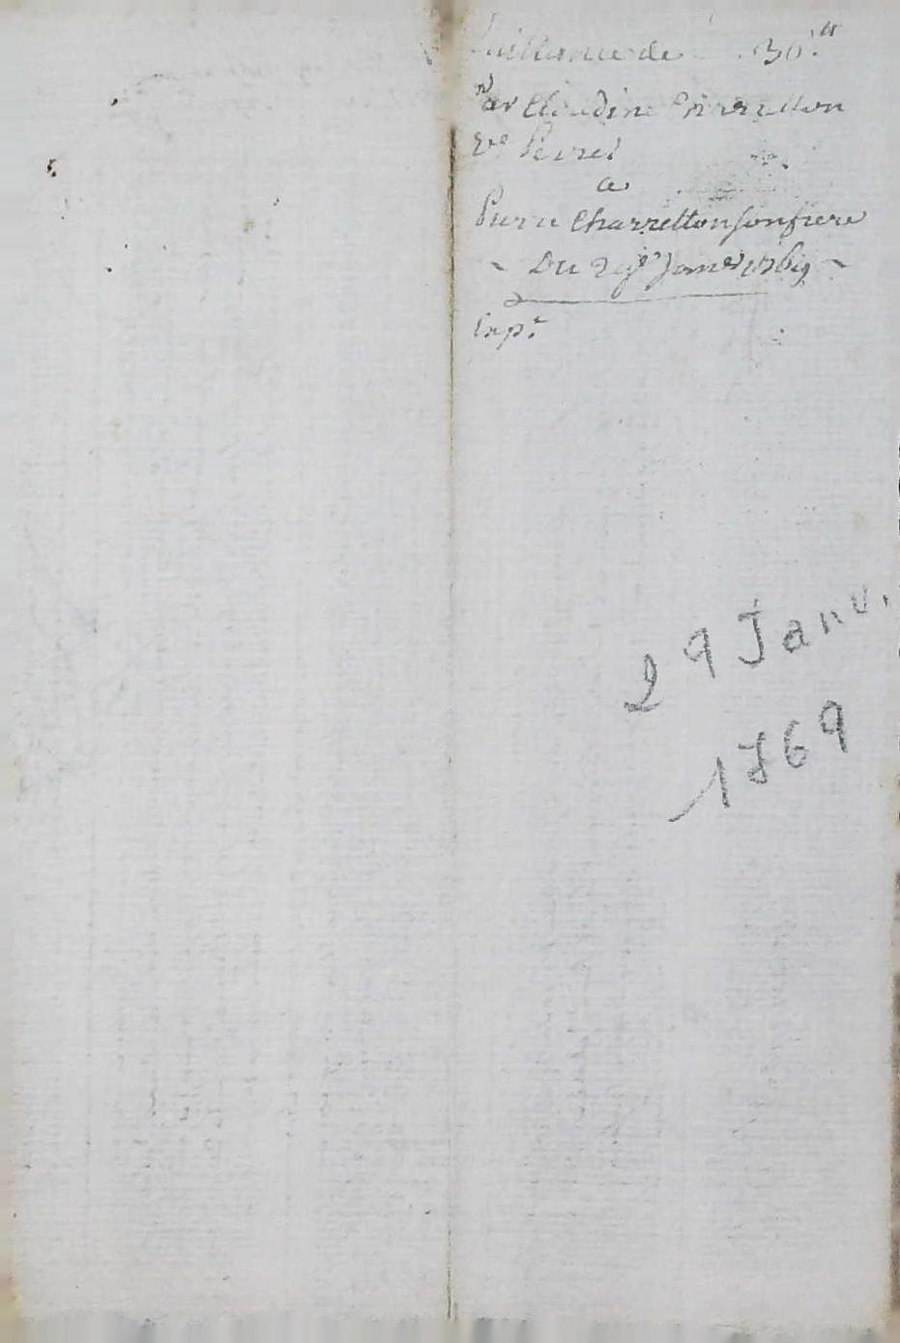 de 30.tt
par Claudine Charretton
Ve
a
Pierre Charretton son frere
~ Du 29e Janer 1769 ~
Expe
29 Janv.
1769